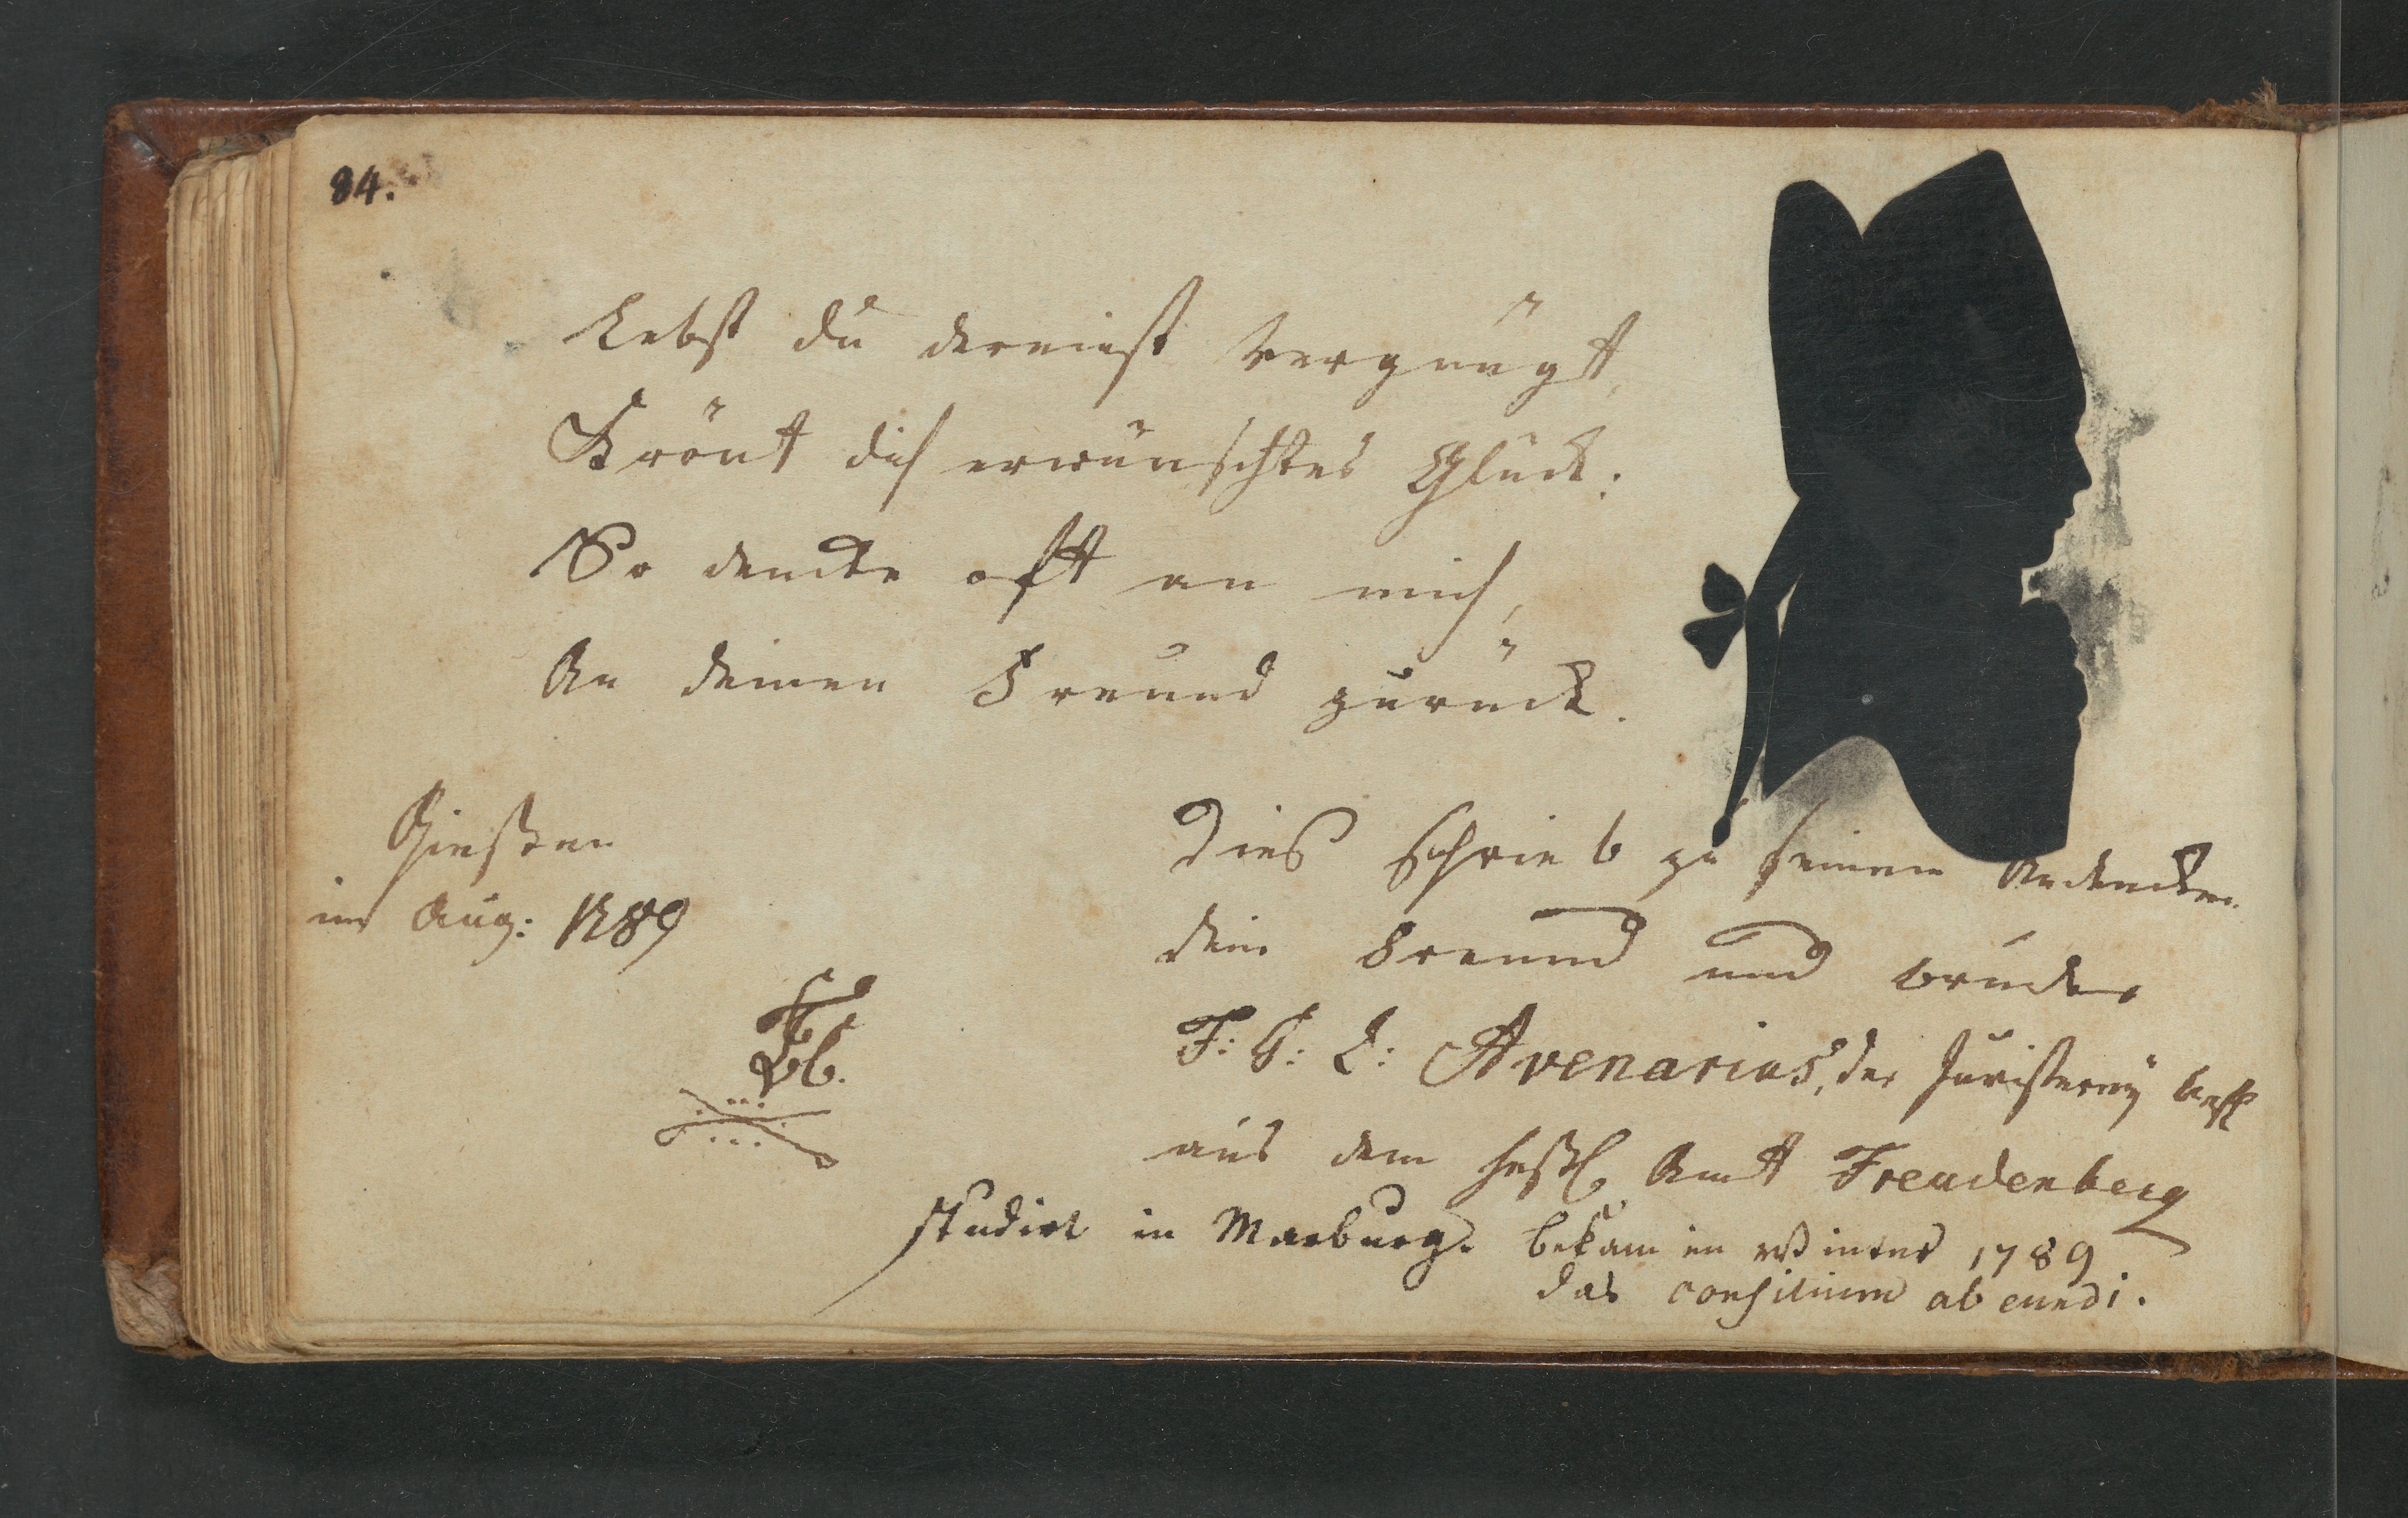 84.
Lebst du dereinst vergnügt,
Krönt dich erwünschtes Glück:
So dencke oft an mich,
An deinen Freund zurück.
Gießen
im Aug: 1789
Dies schrieb zu seinem Andencken
dein Freund und Bruder
F: G: L: Avenarius, der Juristerey
aus dem Amt Freudenberg
studirt in Marburg. bekam im winter 1789
das consilium abeundi.